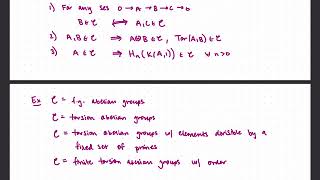 1) For any ses 0 → A → B → C → 0
B ∈ C ⟷ A, C ∈ C
2) A, B ∈ C ⟹ A⊗B ∈ C, Tor(A,B) ∈ C
3) A ∈ C ⟹ Hn(K(A,1)) ∈ C ∀ n>0
Ex C = f.g. abelian groups
C = torsion abelian groups
C = torsion abelian groups w/ elements divisible by a
fixed set of primes
C = finite torsion abelian groups w/ order